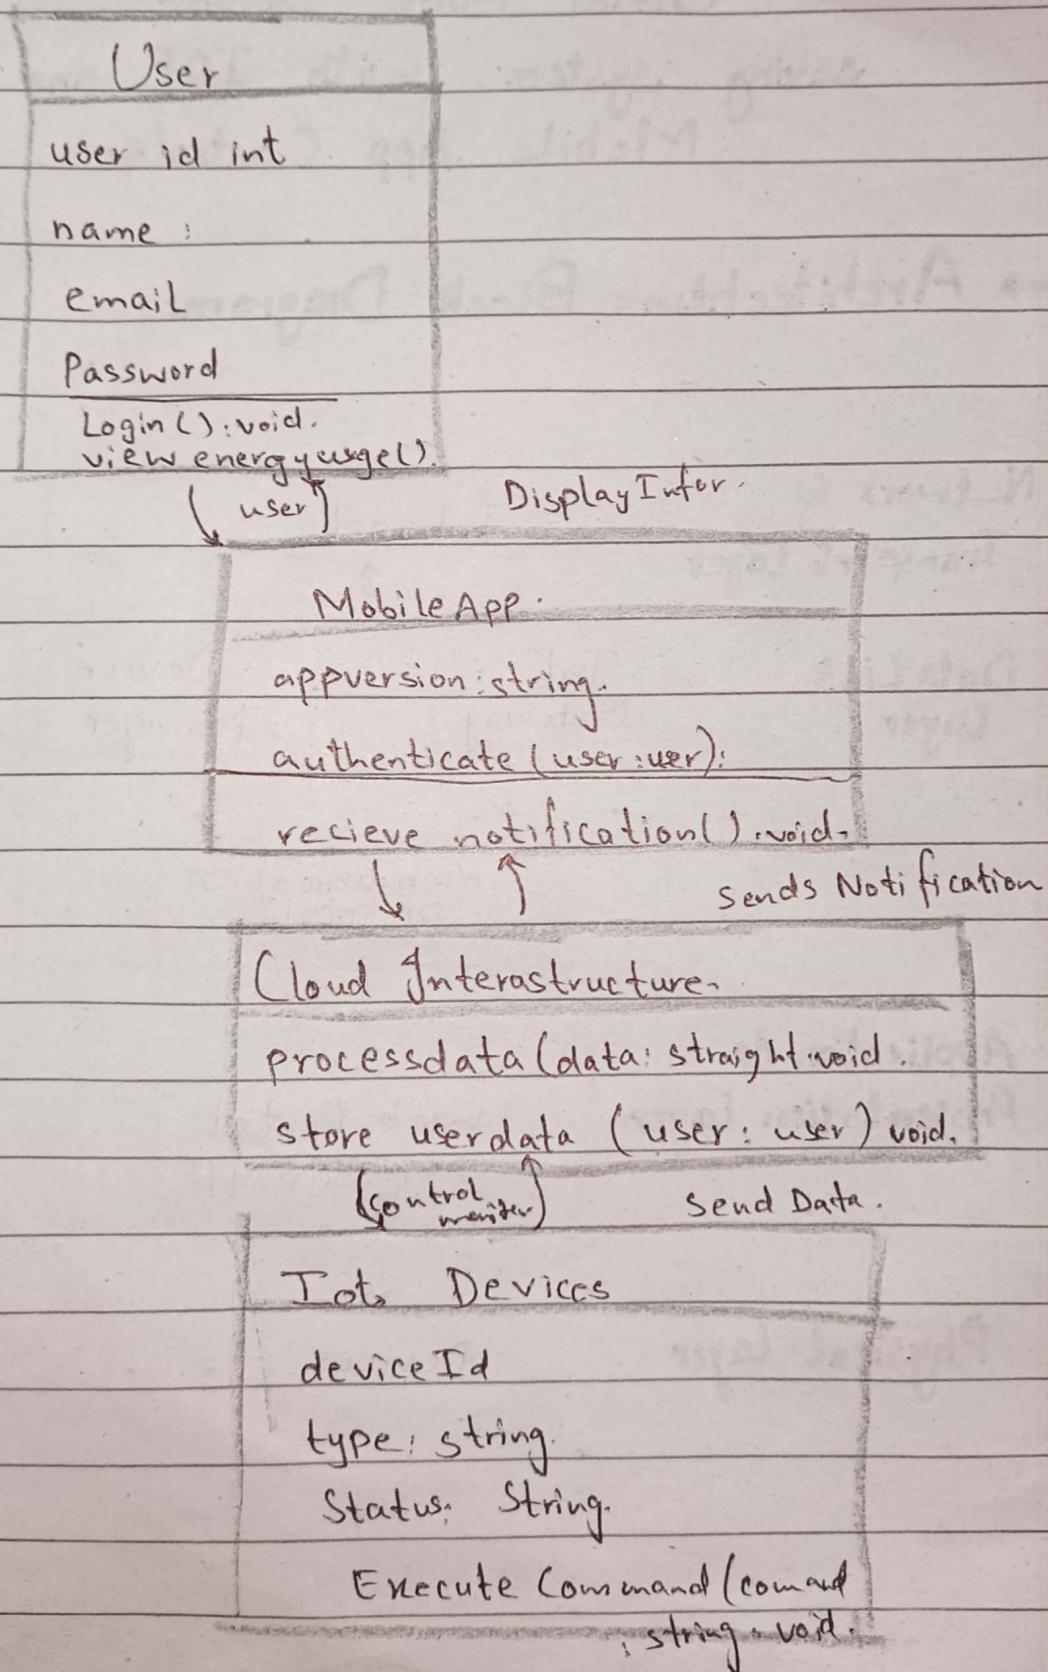 User
user id int
name :
email
Password
Login():void.
view energy usge().
user
Display Infor.
Mobile App.
appversion:string.
authenticate (user:uer):
recieve notification().void.
sends Notification
Cloud Interastructure.
processdata (data: straight void.
store userdata (user: user) void.
control
moniter
Send Data.
Iot Devices
deviceId
type: string.
Status: String.
Execute Command (comand
: string: void.